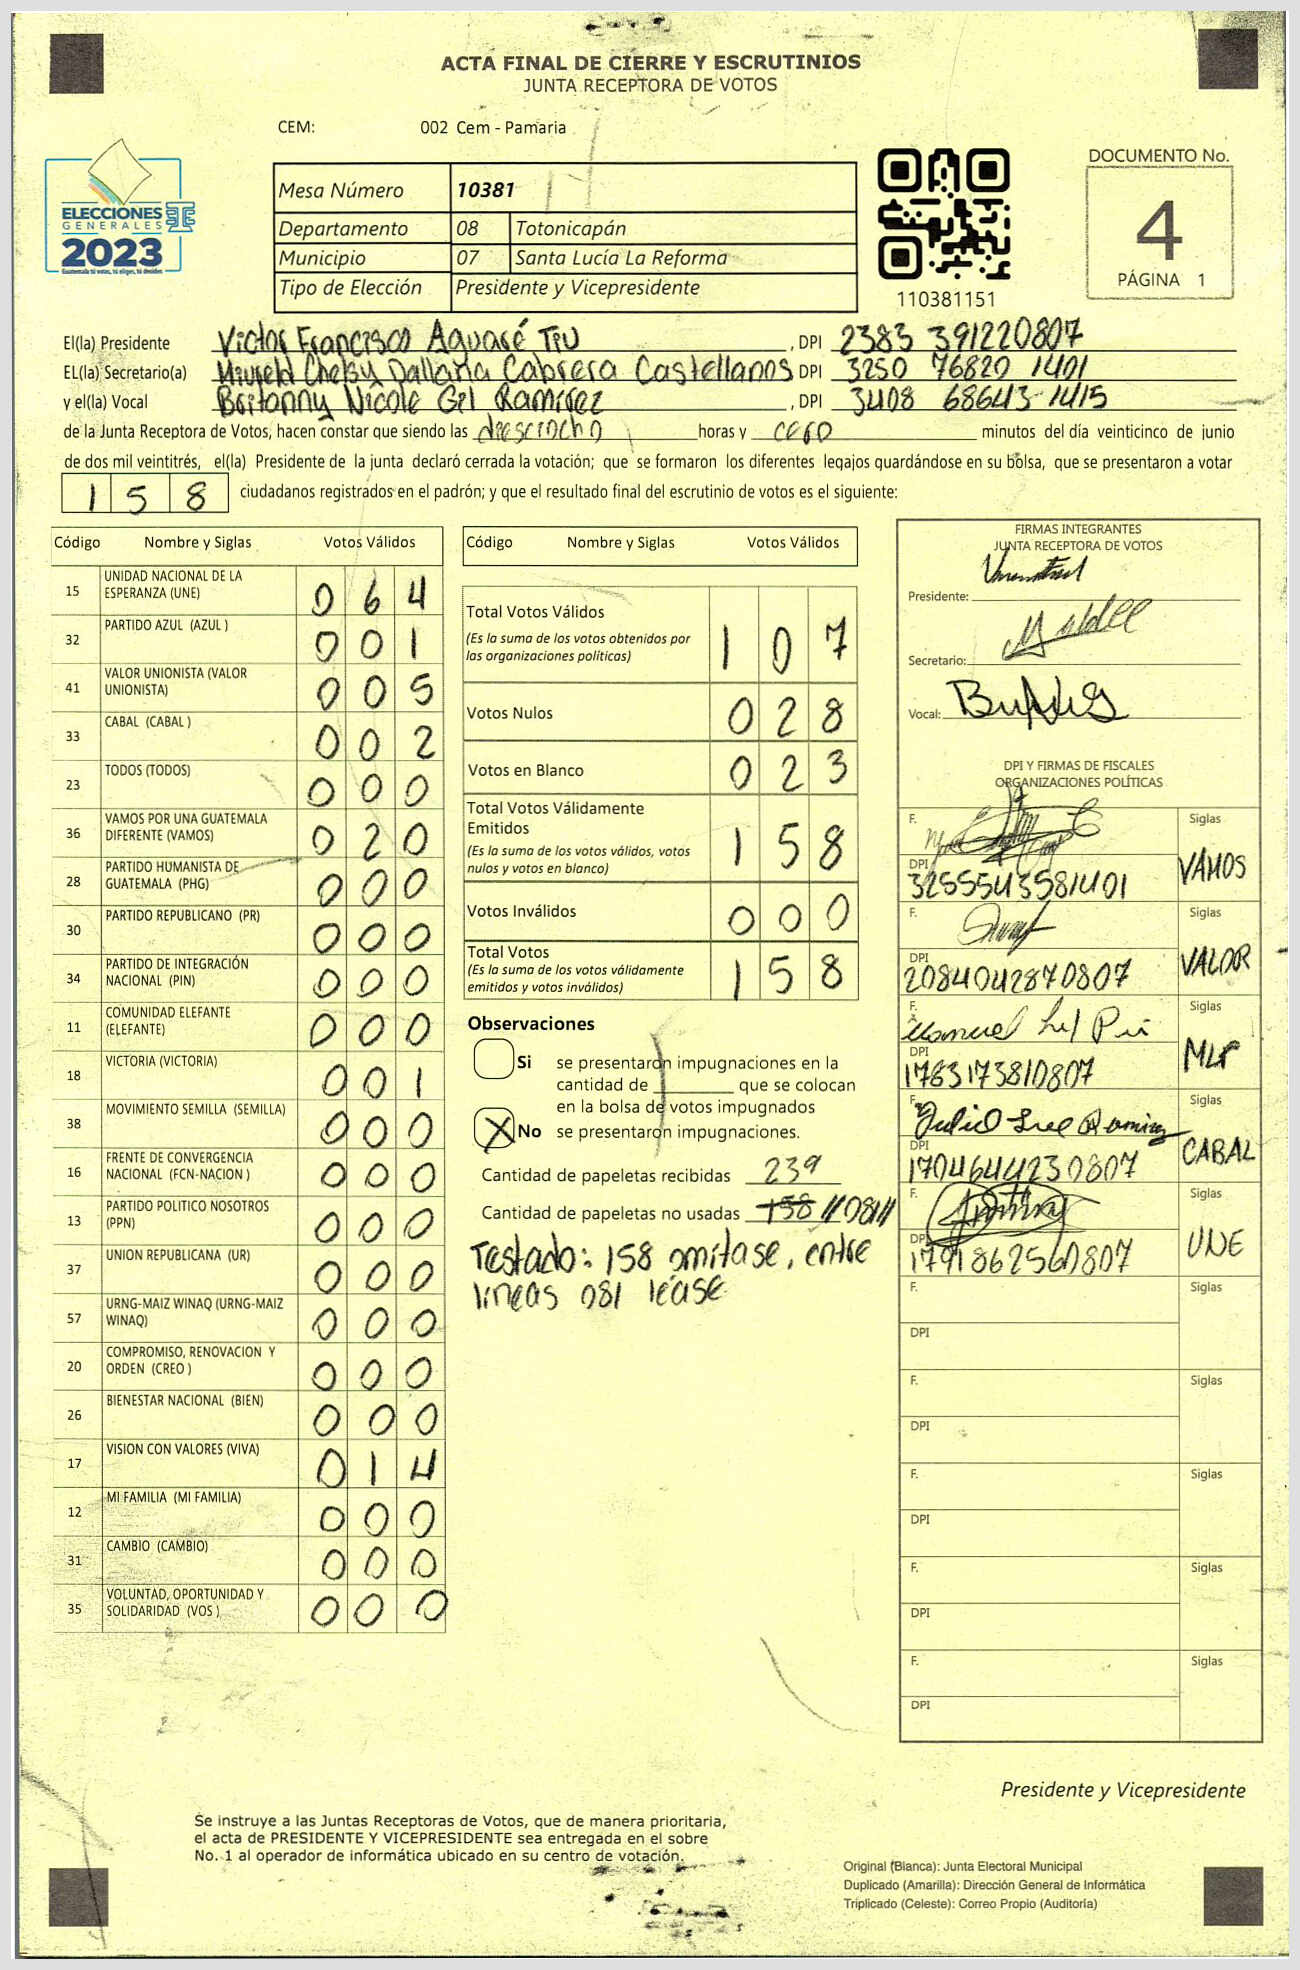 ACTA FINAL DE CIERRE Y ESCRUTINIOS
JUNTA RECEPTORA DE VOTOS
CEM: 002 Cem - Pamaria
ELECCIONES
GENERALES
2023
Guatemala tú votas, tú eliges, tú decides
Mesa Número 10381
Departamento 08 Totonicapán
Municipio 07 Santa Lucía La Reforma
Tipo de Elección Presidente y Vicepresidente
110381151
DOCUMENTO No.
4
PÁGINA 1
El(la) Presidente Victor Francisco Aguaré Tiu , DPI 2383 391220807
EL(la) Secretario(a) Chelsy Dallana Cabrera Castellanos DPI 3250 76820 1401
y el(la) Vocal Britanny Nicole Gil Ramirez , DPI 3408 68643 1415
de la Junta Receptora de Votos, hacen constar que siendo las dieciocho horas y cero minutos del día veinticinco de junio
de dos mil veintitrés, el(la) Presidente de la junta declaró cerrada la votación; que se formaron los diferentes legajos guardándose en su bolsa, que se presentaron a votar
158 ciudadanos registrados en el padrón; y que el resultado final del escrutinio de votos es el siguiente:
Código Nombre y Siglas Votos Válidos
15 UNIDAD NACIONAL DE LA ESPERANZA (UNE) 064
32 PARTIDO AZUL (AZUL ) 001
41 VALOR UNIONISTA (VALOR UNIONISTA) 005
33 CABAL (CABAL ) 002
23 TODOS (TODOS) 000
36 VAMOS POR UNA GUATEMALA DIFERENTE (VAMOS) 020
28 PARTIDO HUMANISTA DE GUATEMALA (PHG) 000
30 PARTIDO REPUBLICANO (PR) 000
34 PARTIDO DE INTEGRACIÓN NACIONAL (PIN) 000
11 COMUNIDAD ELEFANTE (ELEFANTE) 000
18 VICTORIA (VICTORIA) 001
38 MOVIMIENTO SEMILLA (SEMILLA) 000
16 FRENTE DE CONVERGENCIA NACIONAL (FCN-NACION ) 000
13 PARTIDO POLITICO NOSOTROS (PPN) 000
37 UNION REPUBLICANA (UR) 000
57 URNG-MAIZ WINAQ (URNG-MAIZ WINAQ) 000
20 COMPROMISO, RENOVACION Y ORDEN (CREO ) 000
26 BIENESTAR NACIONAL (BIEN) 000
17 VISION CON VALORES (VIVA) 014
12 MI FAMILIA (MI FAMILIA) 000
31 CAMBIO (CAMBIO) 000
35 VOLUNTAD, OPORTUNIDAD Y SOLIDARIDAD (VOS ) 000
Código Nombre y Siglas Votos Válidos
Total Votos Válidos 107
(Es la suma de los votos obtenidos por
las organizaciones políticas)
Votos Nulos 028
Votos en Blanco 023
Total Votos Válidamente
Emitidos 158
(Es la suma de los votos válidos, votos
nulos y votos en blanco)
Votos Inválidos 000
Total Votos 158
(Es la suma de los votos válidamente
emitidos y votos inválidos)
Observaciones
Si se presentaron impugnaciones en la
cantidad de que se colocan
en la bolsa de votos impugnados
X No se presentaron impugnaciones.
Cantidad de papeletas recibidas 239
Cantidad de papeletas no usadas 158 //081//
Testado: 158 omitase, entre
lineas 081 lease
FIRMAS INTEGRANTES
JUNTA RECEPTORA DE VOTOS
Presidente:
Secretario:
Vocal:
DPI Y FIRMAS DE FISCALES
ORGANIZACIONES POLÍTICAS
F. Siglas
DPI 3255543581401 VAMOS
F. Siglas
DPI 2084042870807 VALOR
F. Manuel Siglas
DPI 1763173810807 MLP
F. Julio Ramirez Siglas
DPI 1704644230807 CABAL
F. Siglas
DPI 1791862560807 UNE
F. Siglas
DPI
F. Siglas
DPI
F. Siglas
DPI
F. Siglas
DPI
F. Siglas
DPI
Presidente y Vicepresidente
Se instruye a las Juntas Receptoras de Votos, que de manera prioritaria,
el acta de PRESIDENTE Y VICEPRESIDENTE sea entregada en el sobre
No. 1 al operador de informática ubicado en su centro de votación.
Original (Blanca): Junta Electoral Municipal
Duplicado (Amarilla): Dirección General de Informática
Triplicado (Celeste): Correo Propio (Auditoría)